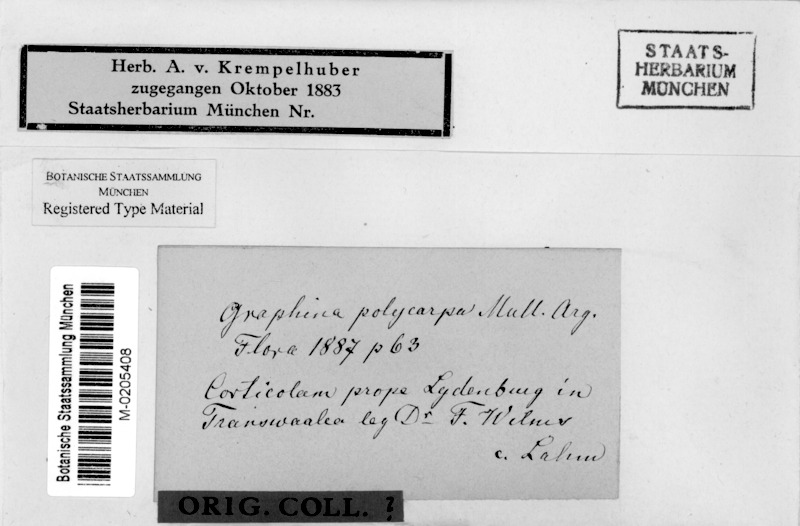 Herb. A. v. Krempelhuber
zugegangen Oktober 1883
Staatsherbarium München Nr.
STAATS-
HERBARIUM
MÜNCHEN
BOTANISCHE STAATSSAMMLUNG
MÜNCHEN
Registered Type Material
Botanische Staatssammlung München
M-0205408
Graphina polycarpa Mull. Arg.
Flora 1887 p 63
Corticolam prope Lydenburg in
Transwaalea leg Dr F. Wilms
c. Lahm
ORIG. COLL. ?